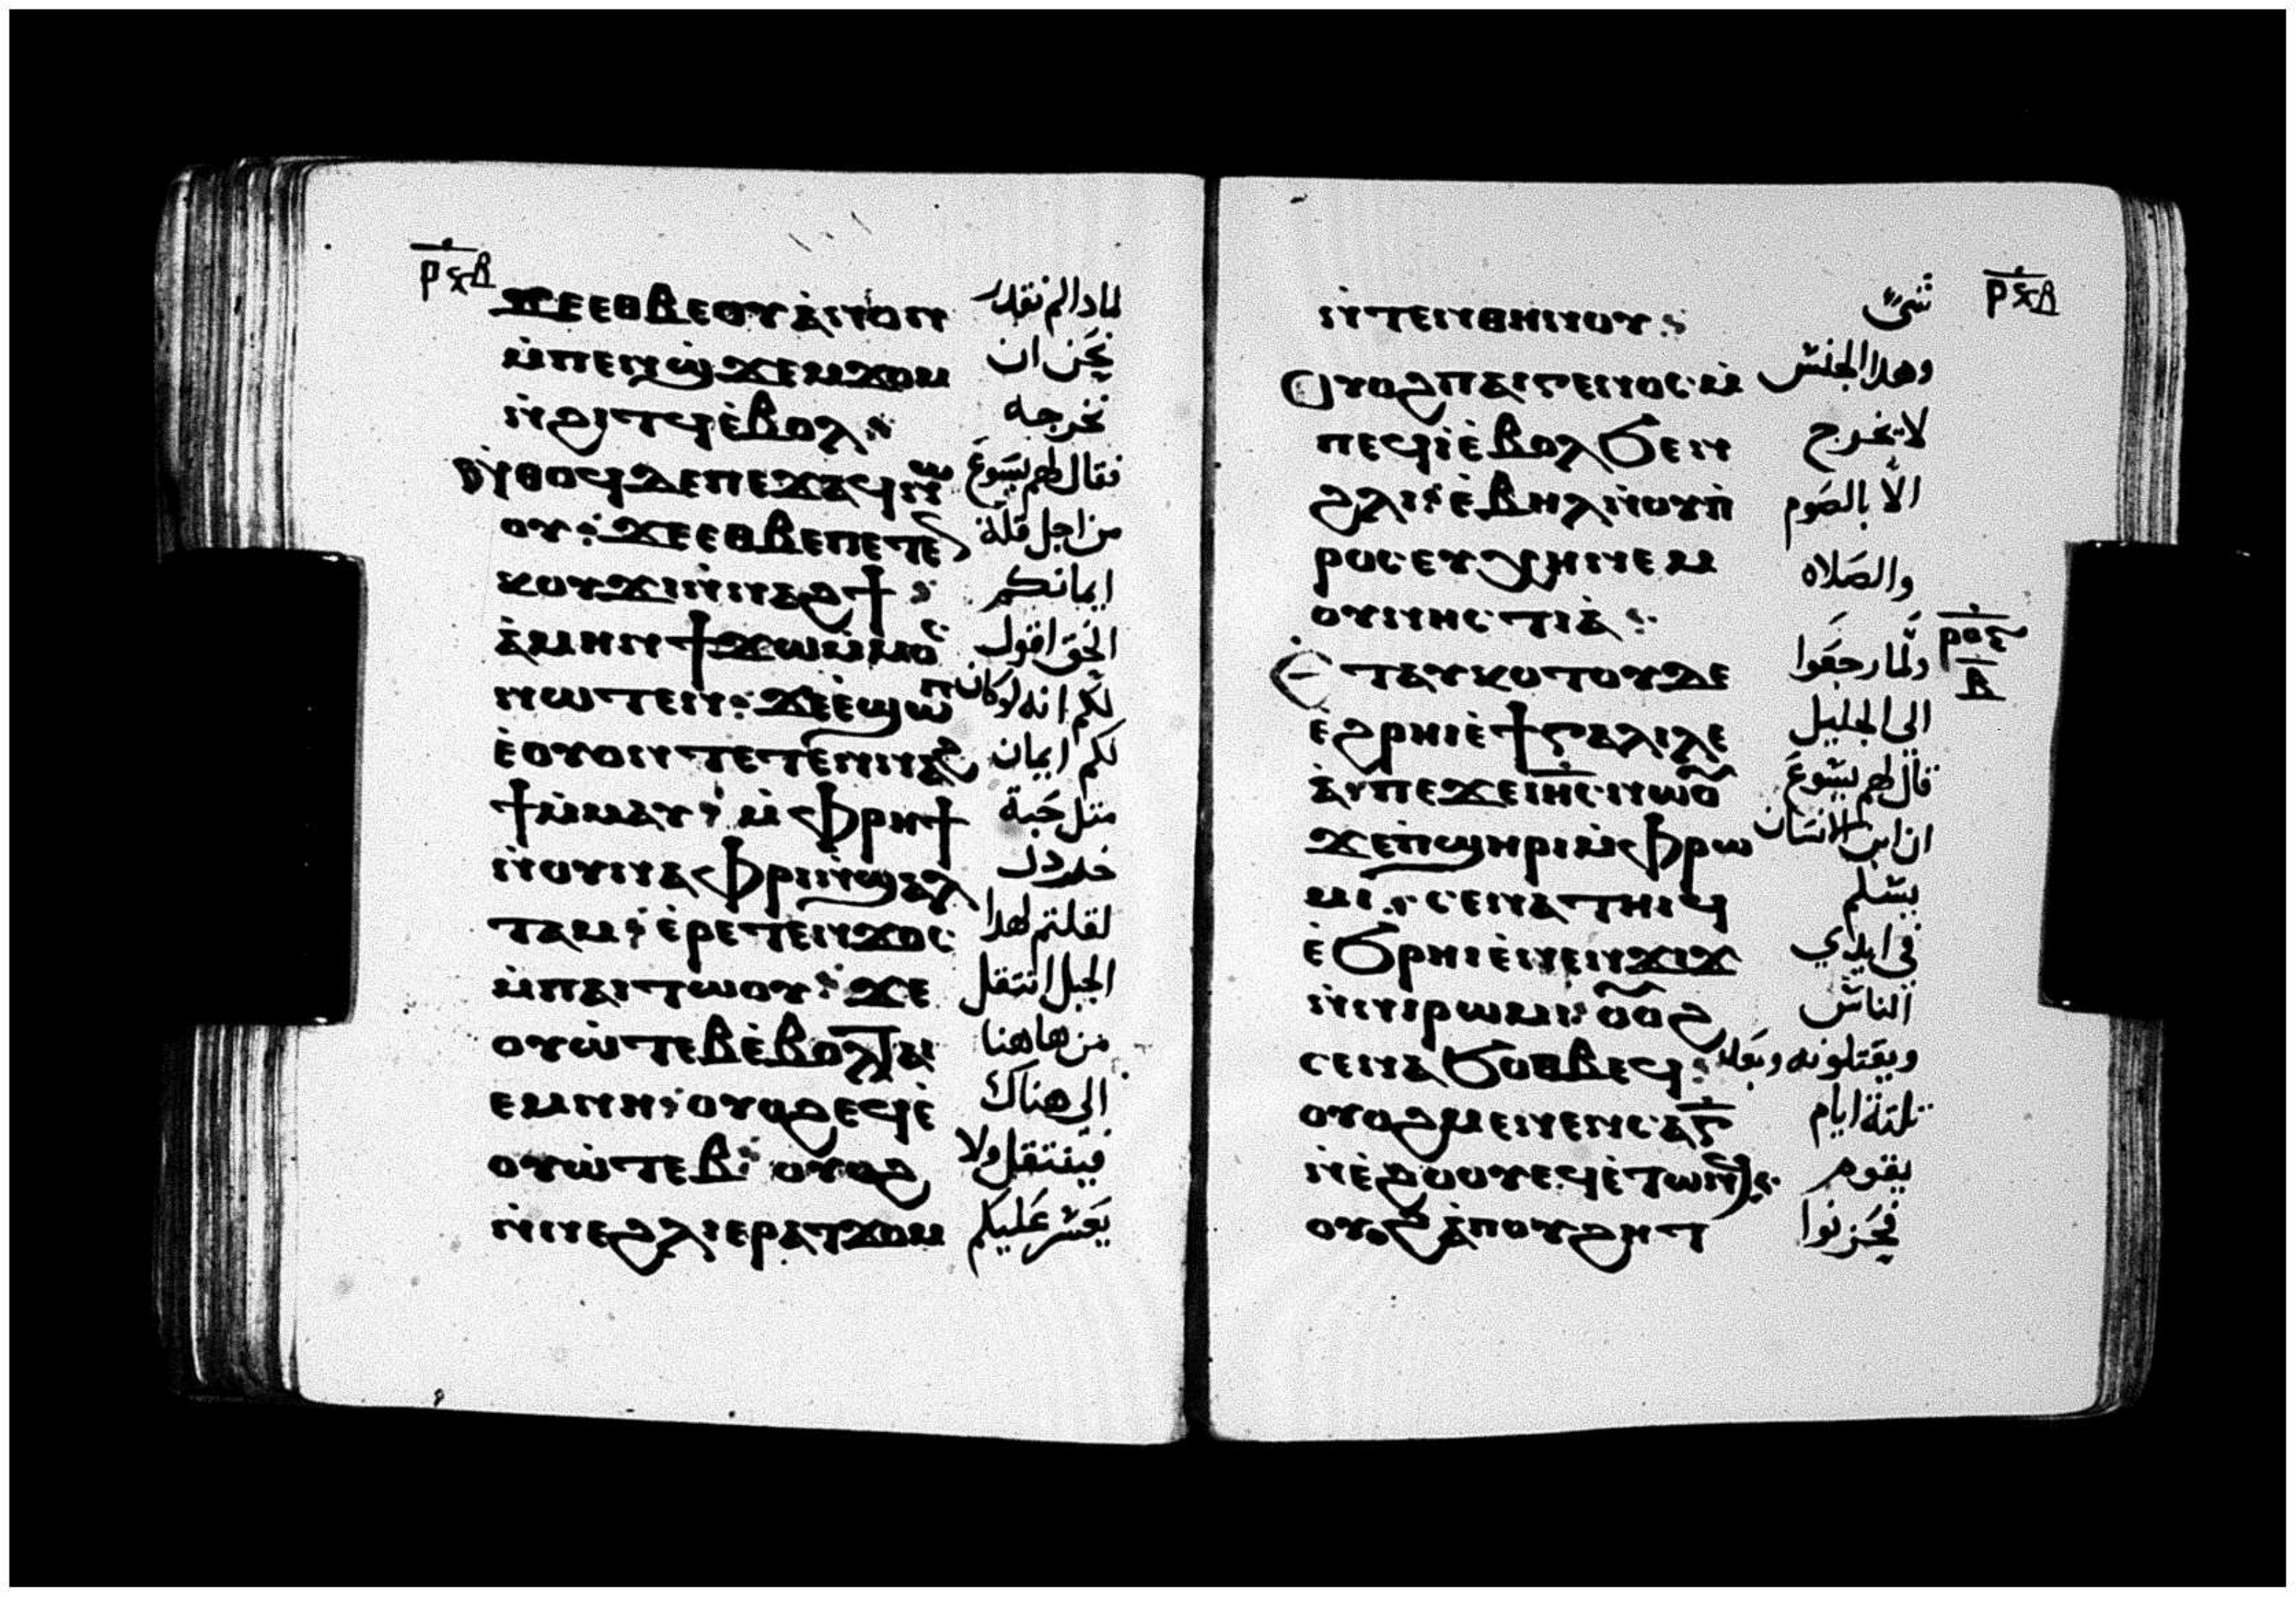 ⲣϥⲃ
ϫⲉⲉⲑⲃⲉⲟⲩ ⲁ̀ⲛⲟⲛ لمادا لم نقدر
ⲙ̀ⲡⲉⲛϣ̀ϫⲉⲙϫⲟⲙ نحن ان
ⲛ̀ϩⲓⲧϥ ⲉ̀ⲃⲟⲗ نخرجه
ⲛ̀ⲑⲟϥ ⲇⲉ ⲡⲉϫⲁϥ ⲛⲱ فقال لهم يسوع
ⲟⲩ ϫⲉ ⲉⲑⲃⲉ ⲡⲉⲧⲉⲛ من اجل قلة
ⲕⲟⲩϫⲓ ⲛ̀ⲛⲁϩϯ ايمانكم
ⲁ̀ⲙⲏⲛ ϯϫⲱ ⲙ̀ⲙⲟⲥ الحق اقول
ⲛⲱⲧⲉⲛ ϫⲉ ⲉ̀ϣⲱⲡ لكم انه لو كان
ⲉ̀ⲟⲩⲟⲛⲧⲉⲧⲉⲛⲛⲁϩ لكم ايمان
ϯ ⲙ̀ⲙⲁⲩ ⲙ̀ⲫⲣⲏϯ متل حبة
ⲛ̀ⲟⲩⲛⲁⲫⲣⲓ ⲛ̀ϣⲁⲗ خردل
ⲧⲁⲙ ⲉ̀ⲣⲉⲧⲉⲛϫⲟⲥ لقلتم لهدا
ⲙ̀ⲡⲁⲓⲧⲱⲟⲩ ϫⲉ الجبل انتقل
ⲟⲩⲱ̀ⲧⲉⲃ ⲉ̀ⲃⲟⲗ ⲧⲁⲓ من هاهنا
ⲉⲙⲛⲏ ⲟⲩⲟϩ ⲉϥⲉ̀ الى هناك
ⲟⲩⲱ̀ⲧⲉⲃ ⲟⲩⲟϩ فينتقل ولا
ⲛ̀ⲛⲉϩⲗⲓ ⲉⲣⲁⲧϫⲟⲙ يعسر عليكم
ⲣϥⲃ
ⲛ̀ⲧⲉⲛⲑⲏⲛⲟⲩ شيئ
ⲟⲩⲟϩ ⲡⲁⲓⲅⲉⲛⲟⲥ ⲙ̀ وهدا الجنس
ⲡⲉϥⲓ̀ ⲉ̀ⲃⲟⲗ ϧⲉⲛ لا يخرج
ϩⲗⲓ ⲉ̀ⲃⲏⲗ ⲛ̀ⲟⲩⲡ̀ الا بالصوم
ⲣⲟⲥⲉⲩⲭⲏ ⲛⲉⲙ والصلاه
ⲟⲩⲛⲏⲥⲧⲓⲁ̀
ⲉ̀ⲧⲁⲩⲕⲟⲧⲟⲩ ⲇⲉ ولما رجعوا
ⲣⲟⲍ
ⲃ
ⲉ̀ϩⲣⲏⲓ ⲉ̀ϯⲅⲁⲗⲓⲗⲉ الى الجليل
ⲁ̀ ⲡⲉϫⲉ ⲓⲏⲥ ⲛⲱⲟⲩ قال لهم يسوع
ϫⲉ ⲡ̀ϣⲏⲣⲓ ⲙ̀ⲫⲣⲱ ان ابن الانسان
ⲙⲓ ⲥⲉⲛⲁⲧⲏⲓϥ يسلم
ⲉ̀ϧⲣⲏⲓ ⲉ̀ⲛⲉⲛϫⲓϫ في ايدي
ⲛ̀ⲛⲓⲣⲱⲙⲓ ⲟⲩⲟϩ الناس
ⲥⲉⲛⲁϧⲟⲑⲃⲉϥ ويقتلونه وبعد
ⲟⲩⲟϩ ⲙⲉⲛⲉⲛⲥⲁ ⲅ̅ تلتة ايام
ⲛ̀ⲉ̀ϩⲟⲟⲩ ⲉϥⲉ̀ⲧⲱⲛϥ يقوم
ⲟⲩⲟϩ ⲁ̀ ⲡⲟⲩϩⲏⲧ فحزنوا